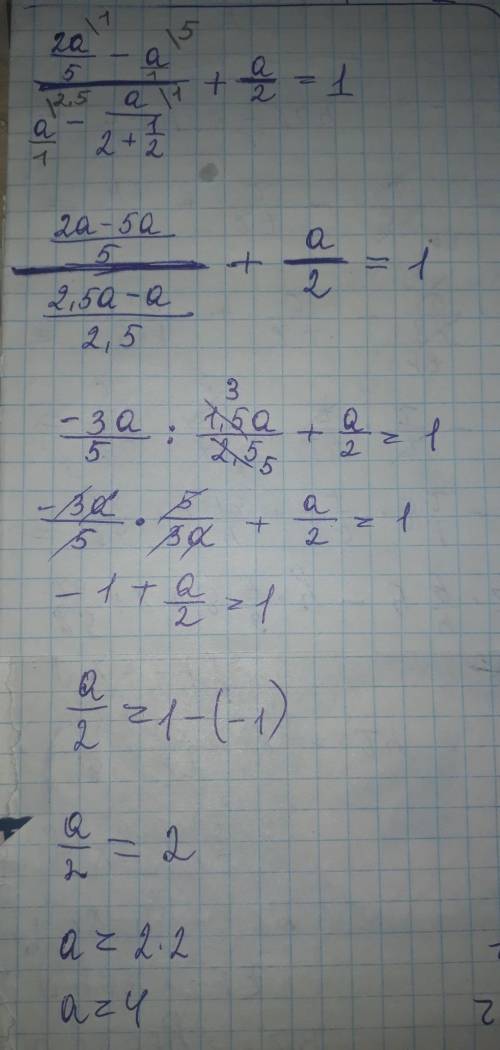 \frac{\frac{2a}{5}^{\backslash 1} - \frac{a}{1}^{\backslash 5}}{\frac{a}{1}^{\backslash 2,5} - \frac{a}{2+\frac{1}{2}}^{\backslash 1}} + \frac{a}{2} = 1
\frac{\frac{2a-5a}{5}}{\frac{2,5a-a}{2,5}} + \frac{a}{2} = 1
\frac{-3a}{5} : \frac{\cancel{1,5}^{3}a}{\cancel{2,5}_{5}} + \frac{a}{2} = 1
\frac{-\cancel{3a}}{\cancel{5}} \cdot \frac{\cancel{5}}{\cancel{3a}} + \frac{a}{2} = 1
-1 + \frac{a}{2} = 1
\frac{a}{2} = 1-(-1)
\frac{a}{2} = 2
a = 2 \cdot 2
a = 4